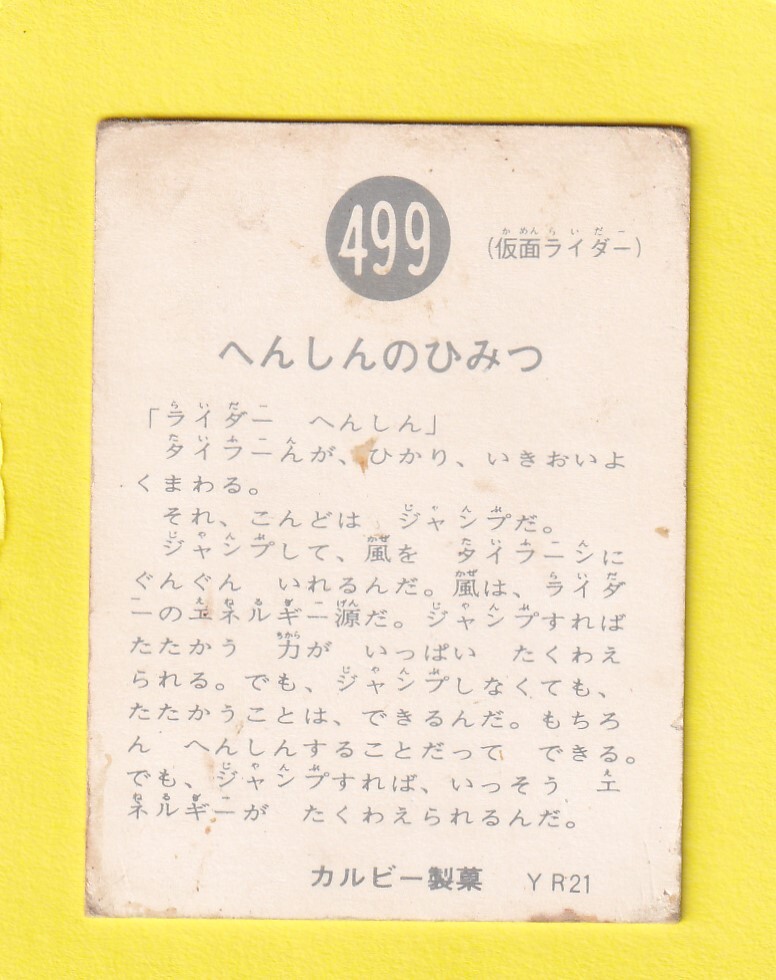 499
(仮面ライダー)
へんしんのひみつ
「ライダー　へんしん」
タイフーんが、ひかり、いきおいよ
くまわる。
それ、こんどは　ジャンプだ。
ジャンプして、風を　タイフーンに
ぐんぐん　いれるんだ。風は、ライダ
ーのエネルギー源だ。ジャンプすれば
たたかう　力が　いっぱい　たくわえ
られる。でも、ジャンプしなくても、
たたかうことは、できるんだ。もちろ
ん　へんしんすることだって　できる。
でも、ジャンプすれば、いっそう　エ
ネルギーが　たくわえられるんだ。
カルビー製菓　YR21